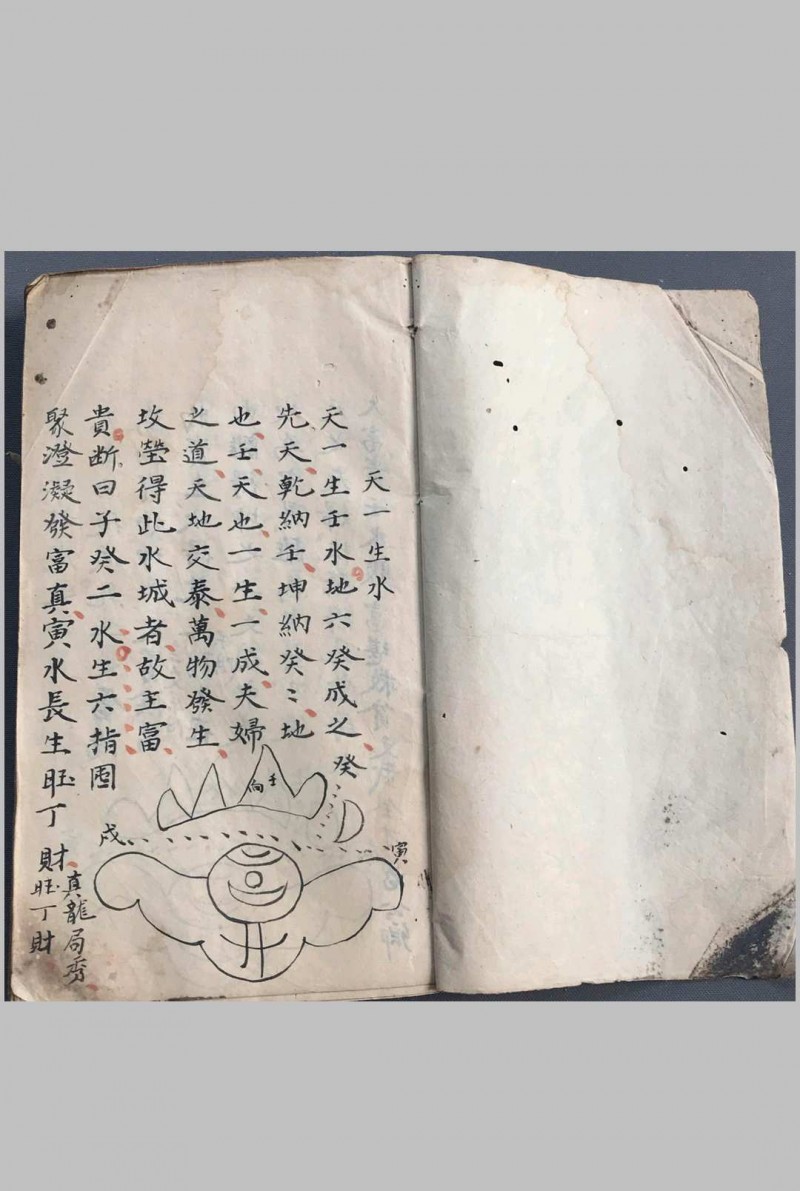 天一生水
天一生壬水地六癸成之
先天乾納壬坤納癸〻地
也壬天也一生一成夫婦
之道天地交泰萬物發生
坟塋得此水城者故主富
貴断曰子癸二水生六指囿
聚澄凝發富真寅水長生旺丁
財旺丁財
真龍局秀
癸
向壬
戍
寅